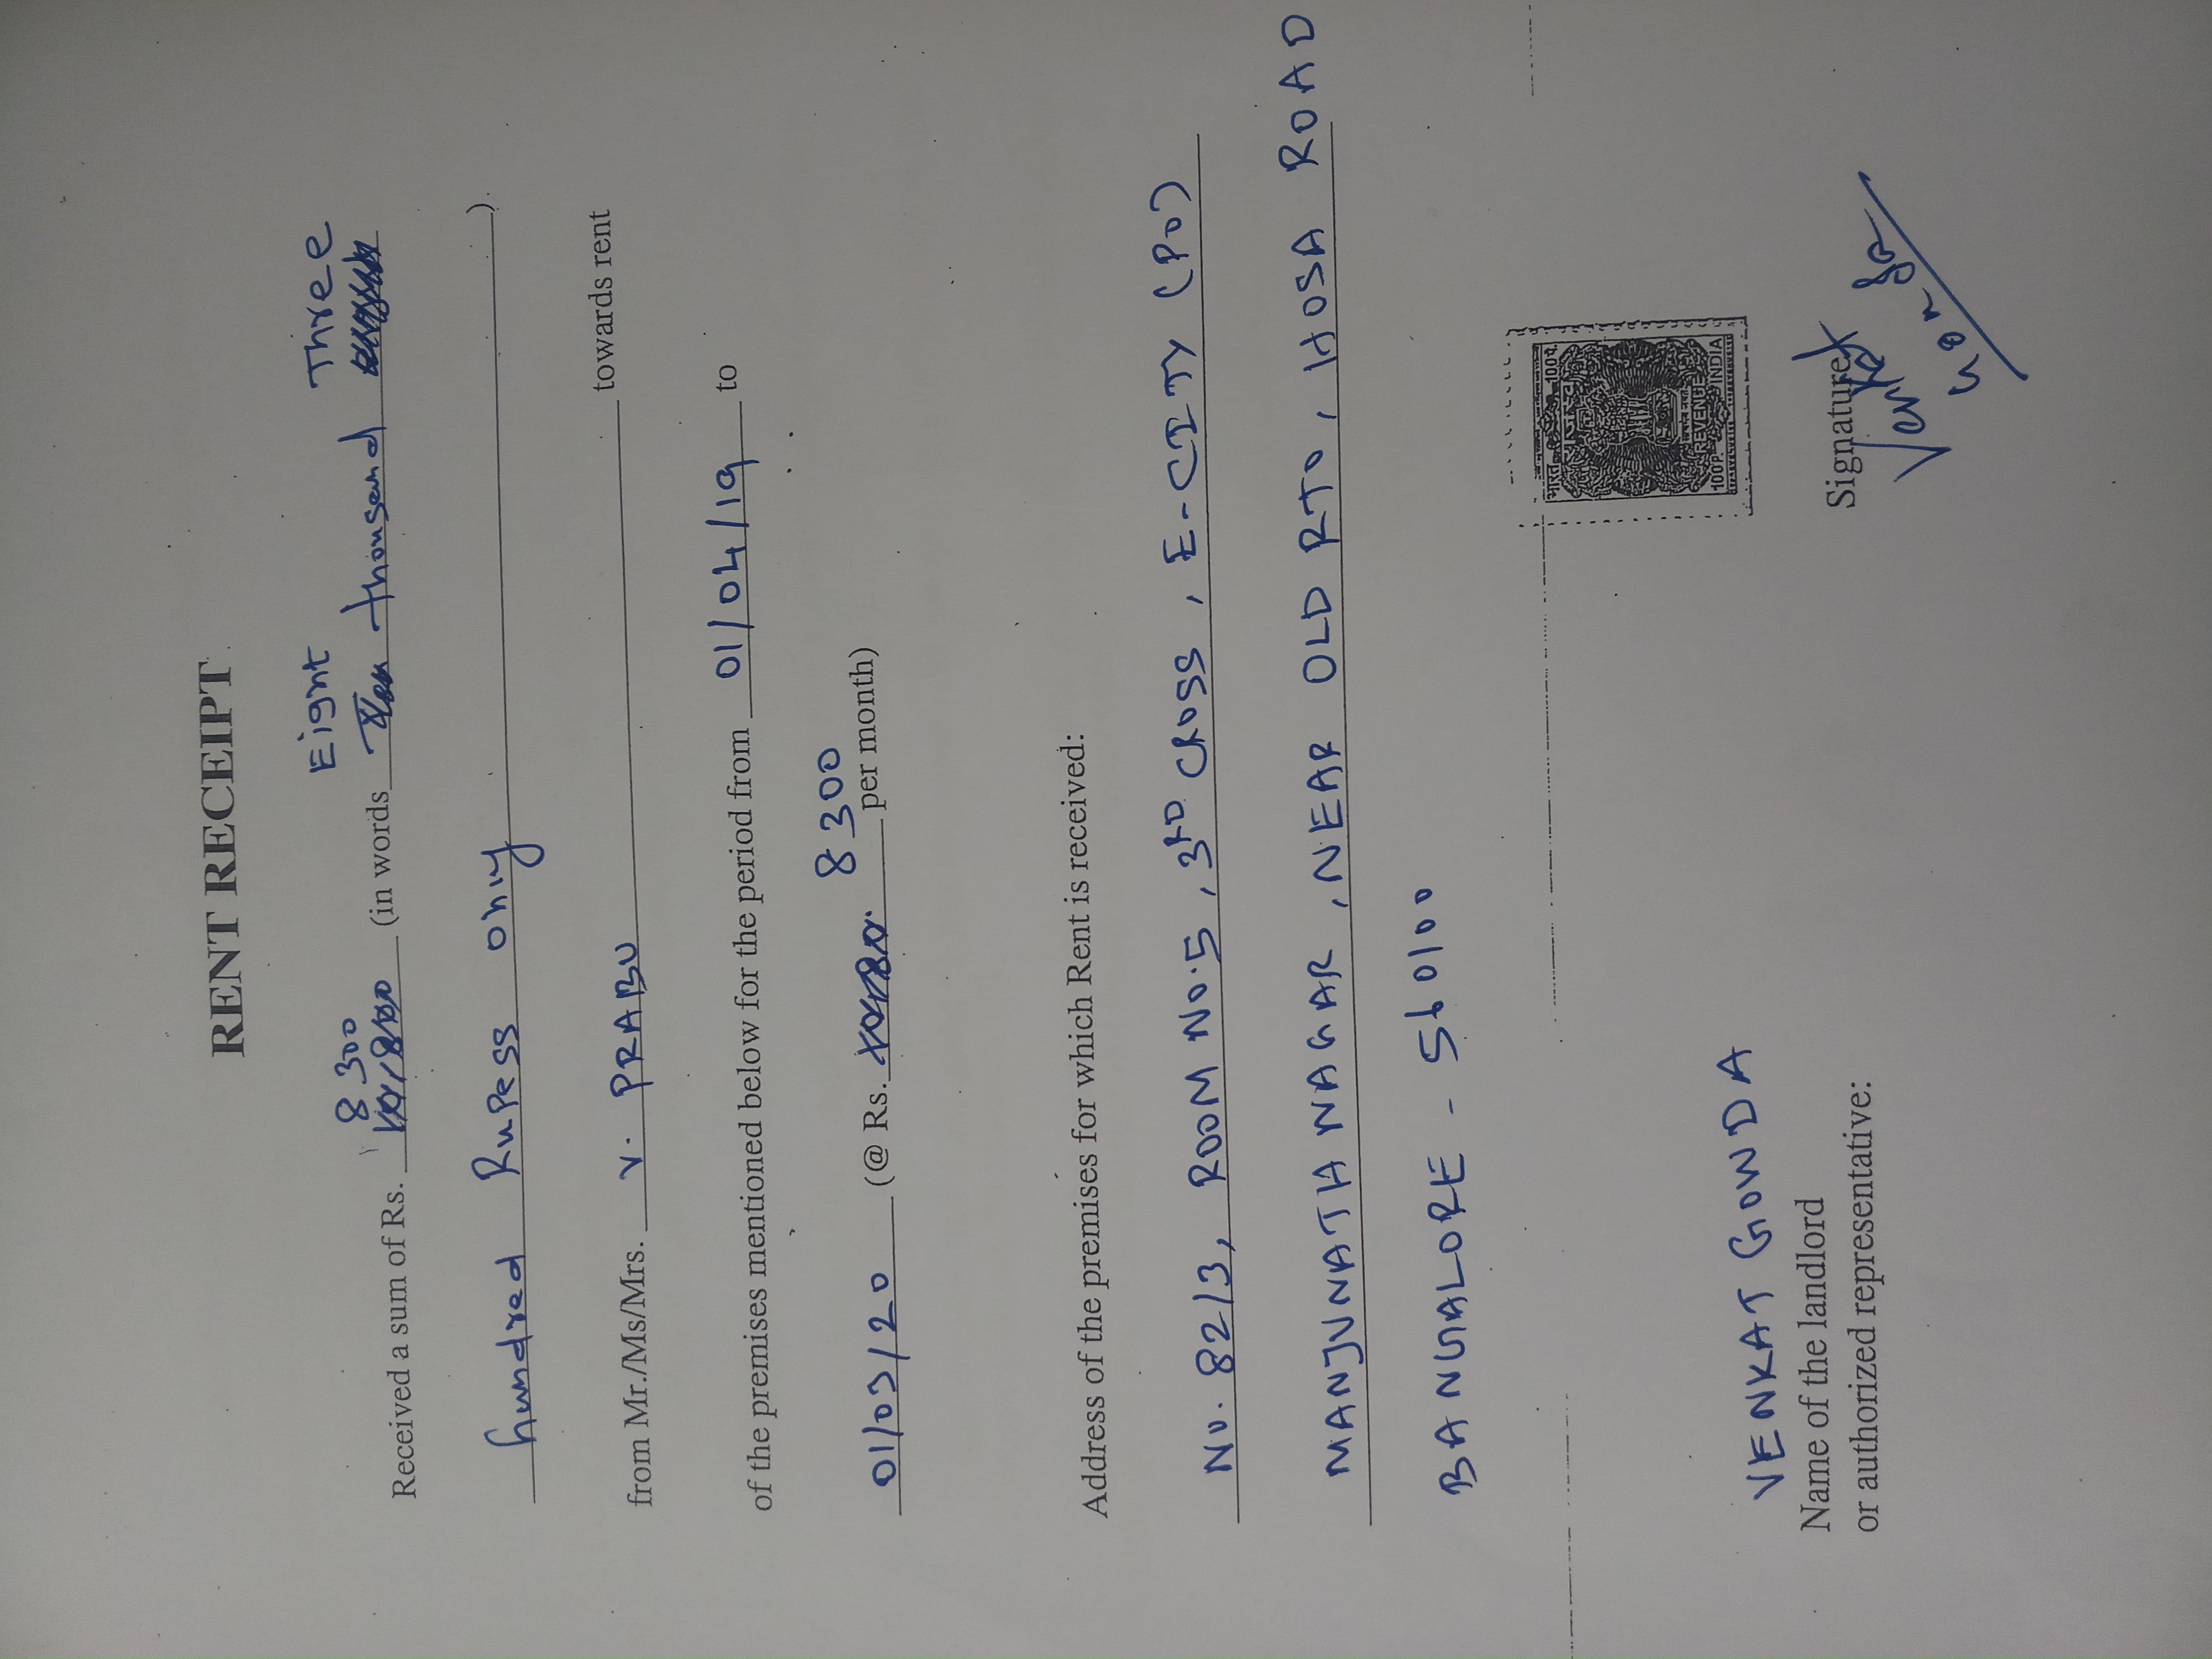 RENT RECEIPT
Eight Three
8300
Received a sum of Rs. (in words thousand
hundred Rupess only ).
from Mr./Ms/Mrs. V. PRABU towards rent
of the premises mentioned below for the period from 01/04/19 to
8300
01/03/20 (@ Rs. per month)
Address of the premises for which Rent is received:
No. 82/3, ROOM No.5, 3RD CROSS, E-CITY (PO)
MANJUNATH NAGAR, NEAR OLD RTO, HOSA ROAD
BANGALORE - 560100
भारत 100प.
राजस्व
सत्यमेव जयते
REVENUE
100P. INDIA
VENKAT GOWDA
Name of the landlord
or authorized representative:
Signature
Venkat
Gowda